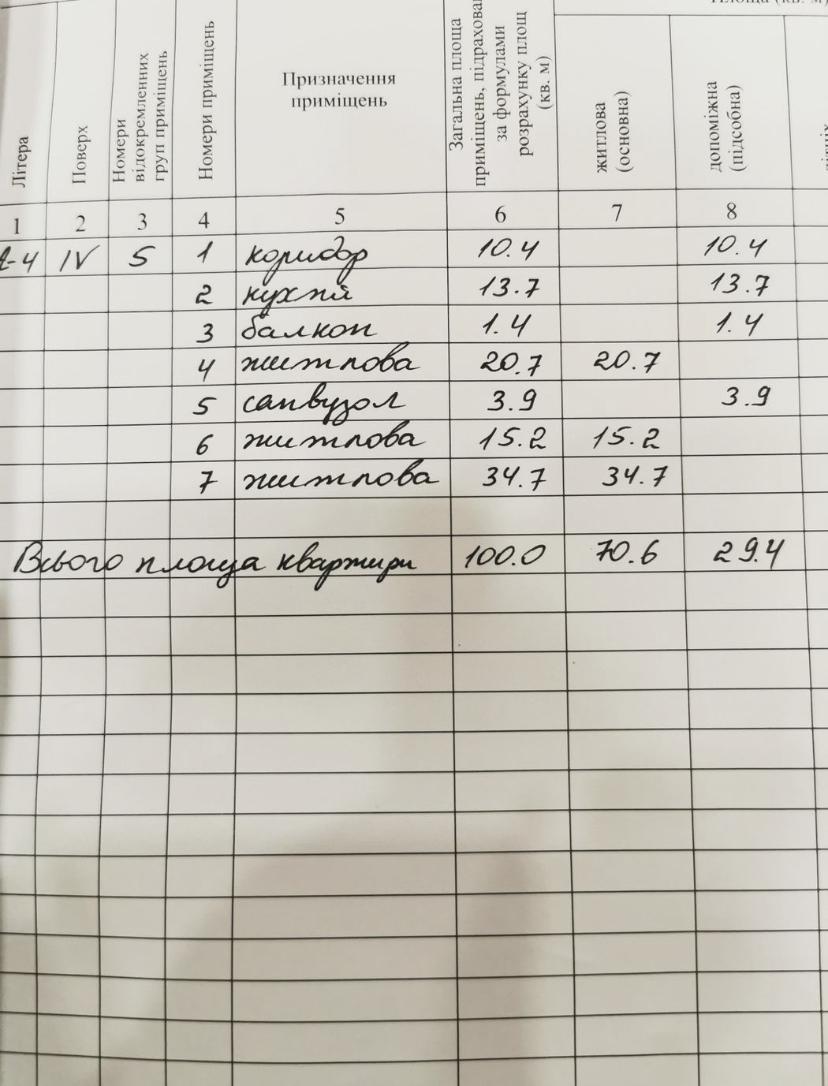 Літера
Поверх
Номери відокремленних груп приміщень
Номери приміщень
Призначення приміщень
Загальна площа приміщень, підрахован за формулами розрахунку площ (кв. м)
житлова (основна)
допоміжна (підсобна)
1 2 3 4 5 6 7 8
-4 IV 5 1 коридор 10.4 10.4
2 кухня 13.7 13.7
3 балкон 1.4 1.4
4 житлова 20.7 20.7
5 санвузол 3.9 3.9
6 житлова 15.2 15.2
7 житлова 34.7 34.7
Всього площа квартири 100.0 70.6 29.4